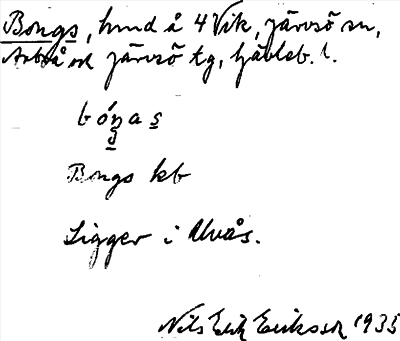 Bongs, hmd å 4 Vik, järvsö sn,
Arbrå ok järvsö tg, hävleb. l.
bóŋas
Bongs kb
Ligger i Ulvås.
Nils Erik Eriksson 1935